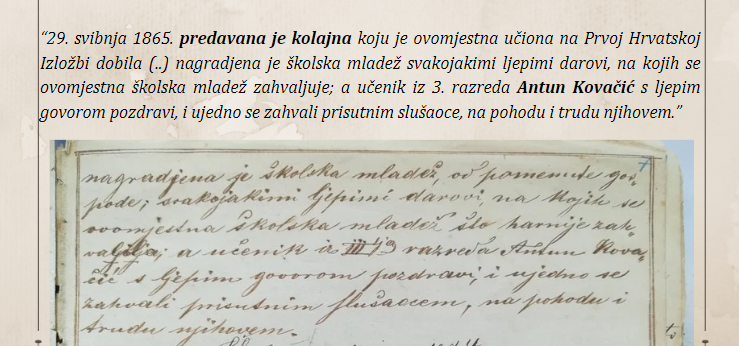 “29. svibnja 1865. predavana je kolajna koju je ovomjestna učiona na Prvoj Hrvatskoj
Izložbi dobila (..) nagradjena je školska mladež svakojakimi ljepimi darovi, na kojih se
ovomjestna školska mladež zahvaljuje; a učenik iz 3. razreda Antun Kovačić s ljepim
govorom pozdravi, i ujedno se zahvali prisutnim slušaoce, na pohodu i trudu njihovem.”
7
nagradjena je školska mladež, od pomenute gos-
pode; svakojakimi ljepimi darovi, na kojih se
ovomjestna školska mladež što harnije zah-
a učenik iz III razreda Antun Kova-
čić s ljepim govorom pozdravi, i ujedno se
zahvali prisutnim slušaocem, na pohodu i
trudu njihovem.